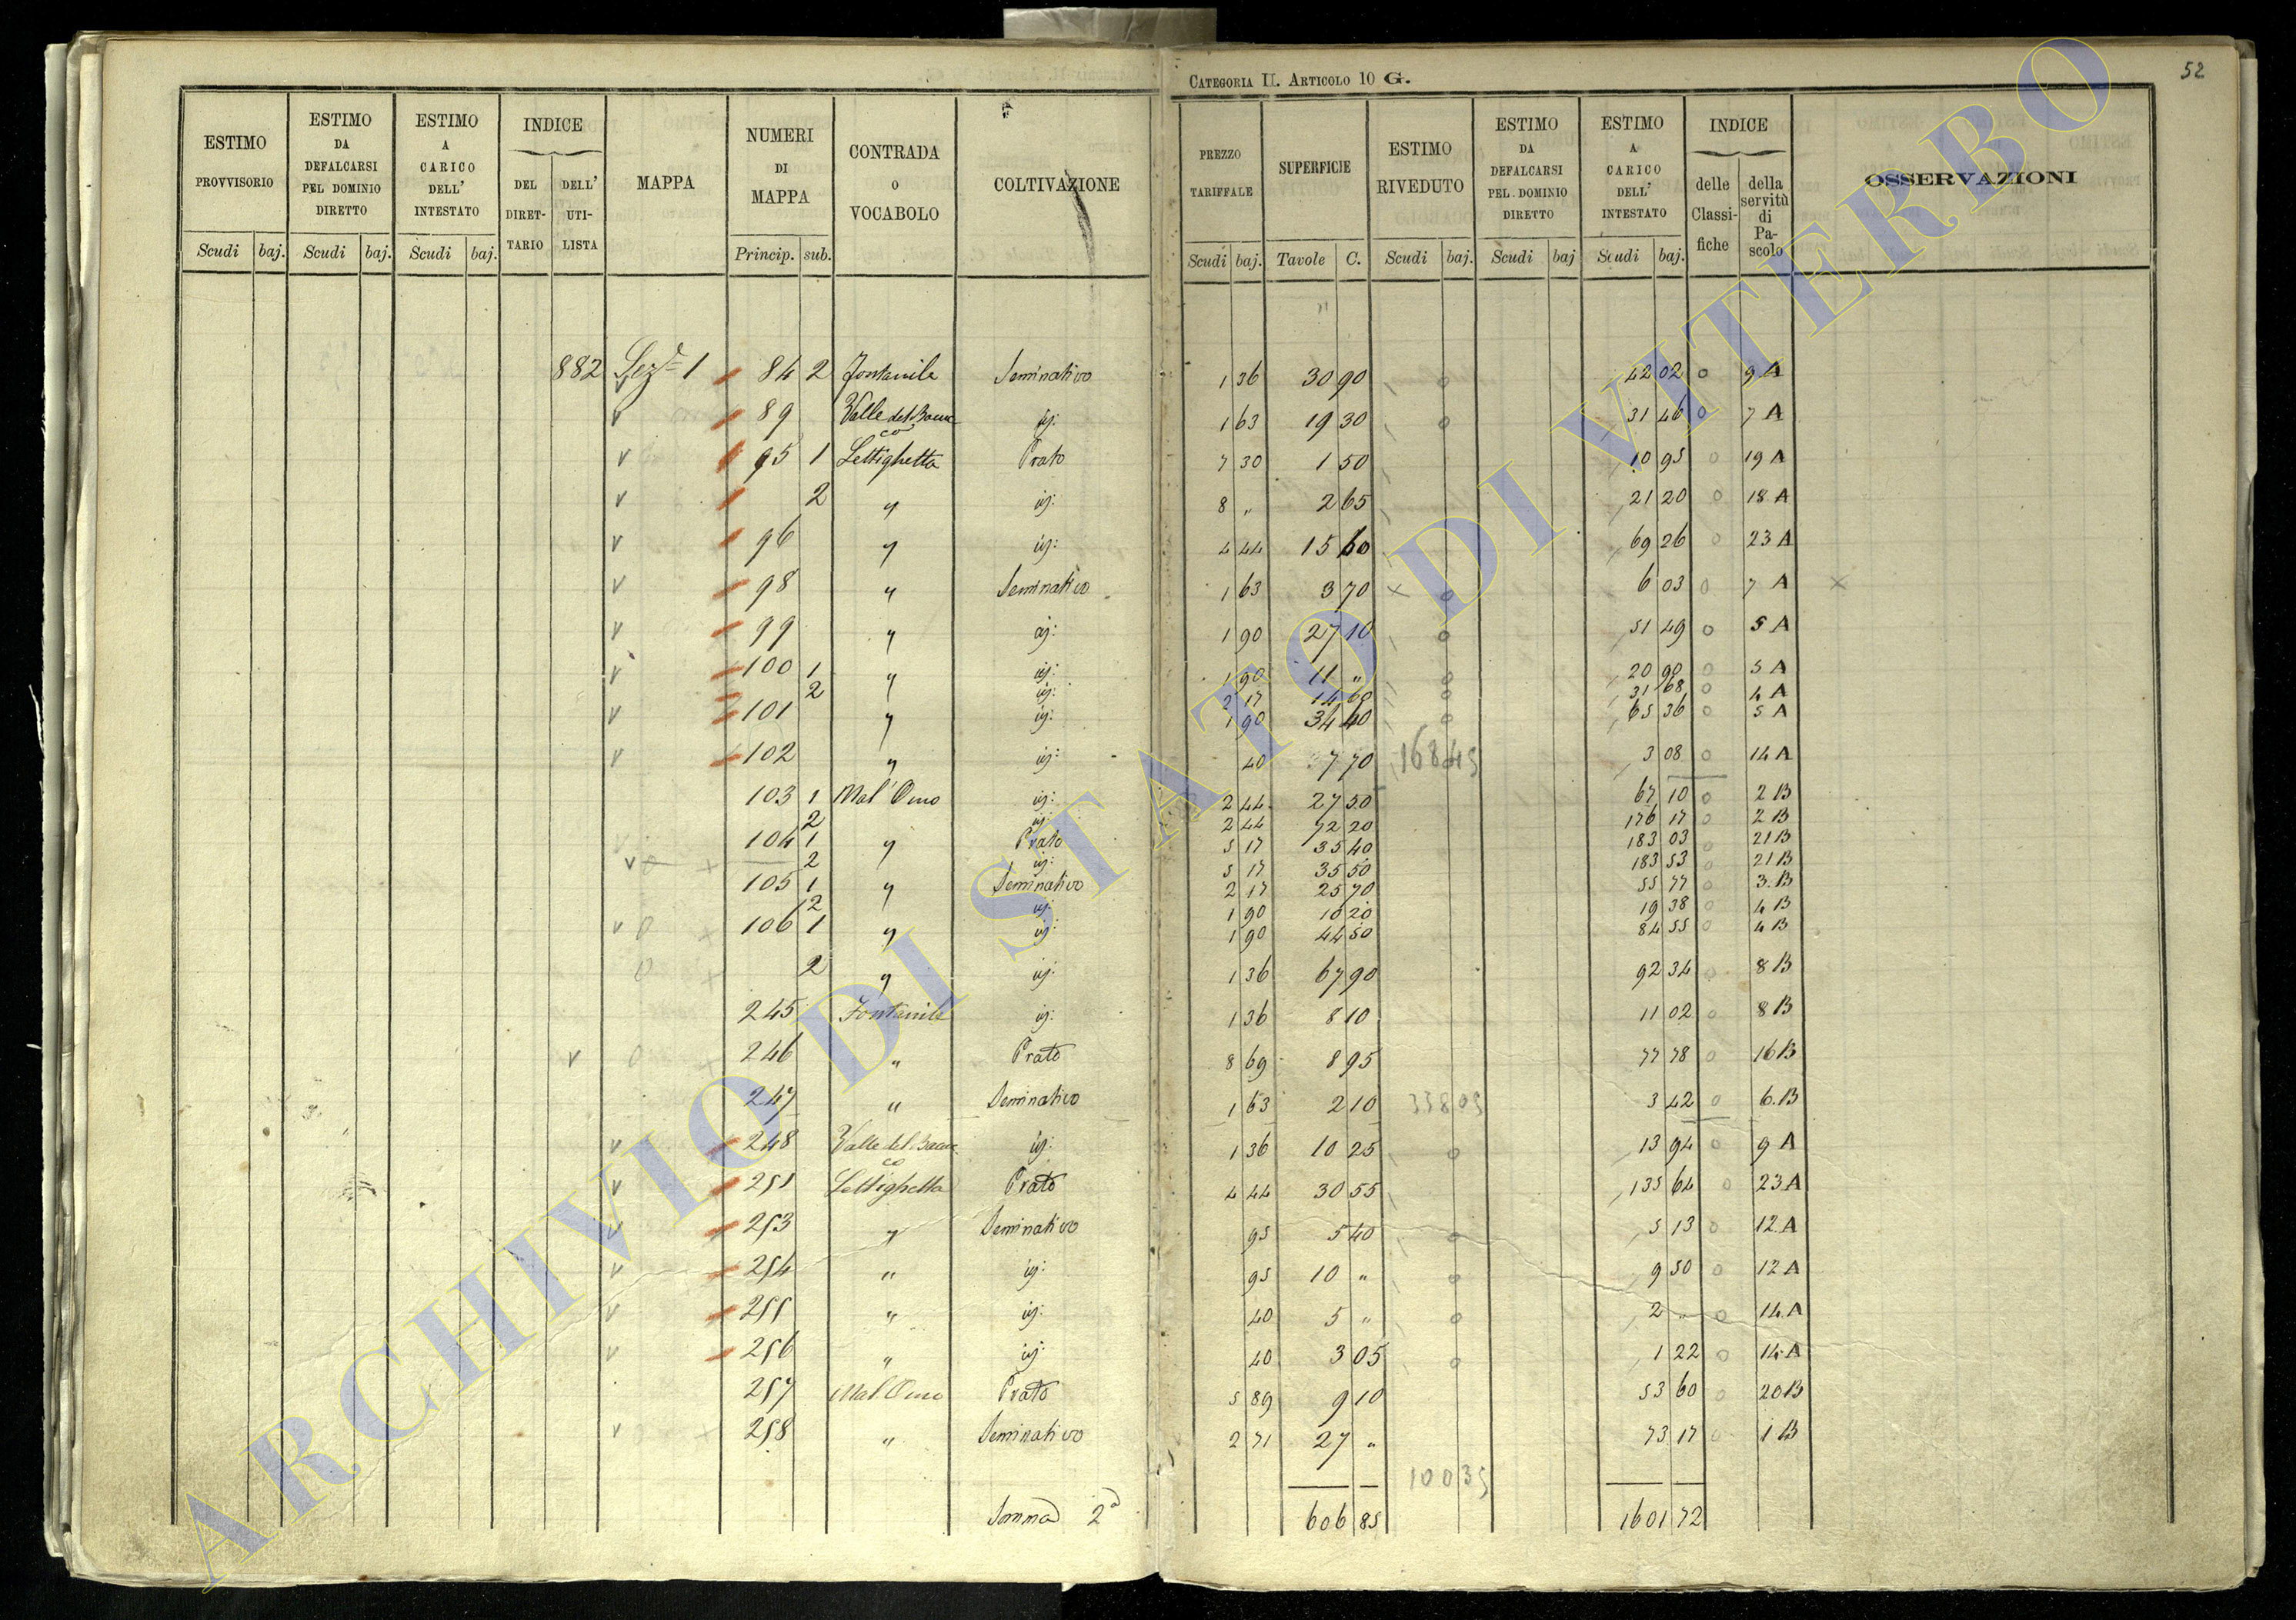 CATEGORIA II. ARTICOLO 10 G.
52
ESTIMO PROVVISORIO Scudi baj.
ESTIMO DA DEFALCARSI PEL DOMINIO DIRETTO Scudi baj.
ESTIMO A CARICO DELL' INTESTATO Scudi baj.
INDICE DEL DIRET-TARIO DELL' UTI-LISTA
MAPPA
NUMERI DI MAPPA Princip. sub.
CONTRADA O VOCABOLO
COLTIVAZIONE
PREZZO TARIFFALE Scudi baj.
SUPERFICIE Tavole C.
ESTIMO RIVEDUTO Scudi baj.
ESTIMO DA DEFALCARSI PEL DOMINIO DIRETTO Scudi baj
ESTIMO A CARICO DELL' INTESTATO Scudi baj.
INDICE delle Classi-fiche della servitù di Pa-scolo
OSSERVAZIONI
882 Sez.e 1 84 2 Fontanile Seminativo 1 36 30 90 42 02 0 9 A
89 Valle del Bauc co ij: 1 63 19 30 31 46 0 7 A
95 1 Lettighetta Prato 7 30 1 50 10 95 0 19 A
2 " ij: 8 " 2 65 21 20 0 18 A
96 " ij: 4 44 15 60 69 26 0 23 A
98 " Seminativo 1 63 3 70 × 0 6 03 0 7 A ×
99 " ij: 1 90 27 10 51 49 0 5 A
100 1 " ij: 1 90 11 " 20 90 0 5 A
2 ij: 2 17 14 60 31 68 0 4 A
101 " ij: 1 90 34 40 65 36 0 5 A
102 " ij: 40 7 70 168 45 3 08 0 14 A
103 1 Mal'Omo ij: 2 44 27 50 67 10 0 2 B
2 ij: 2 44 72 20 176 17 0 2 B
104 1 " Prato 5 17 35 40 183 03 0 21 B
2 ij: 5 17 35 50 183 53 0 21 B
105 1 " Seminativo 2 17 25 70 55 77 0 3 B
2 ij: 1 90 10 20 19 38 0 4 B
106 1 " ij: 1 90 44 50 84 55 0 4 B
2 " ij: 1 36 67 90 92 34 0 8 B
245 Fontanile ij: 1 36 8 10 11 02 0 8 B
246 " Prato 8 69 8 95 77 78 0 16 B
247 " Seminativo 1 63 2 10 338 05 3 42 0 6.B
248 Valle del Bauc co ij: 1 36 10 25 13 94 0 9 A
251 Lettighetta Prato 4 44 30 55 135 64 0 23 A
253 " Seminativo 95 5 40 5 13 0 12 A
254 " ij: 95 10 " 9 50 0 12 A
255 " ij: 40 5 " 2 " 0 14 A
256 " ij: 40 3 05 1 22 0 14 A
257 Mal'Omo Prato 5 89 9 10 53 60 0 20 B
258 " Seminativo 2 71 27 " 73 17 0 1 B
100 35
Somma 2a 606 85 1601 72
ARCHIVIO DI STATO DI VITERBO